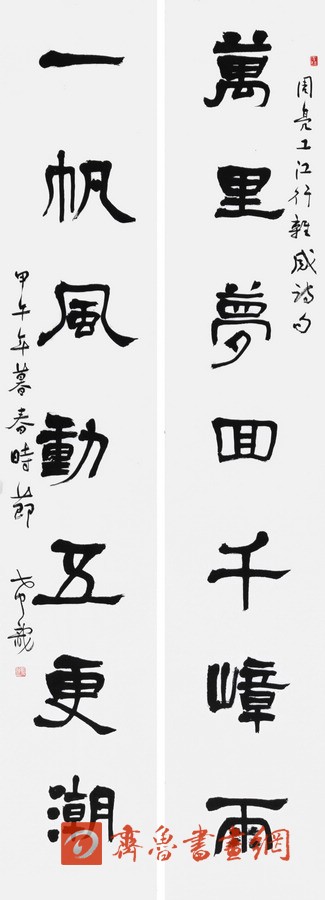 周亮工江行雜感詩句
萬里夢回千嶂雨
一帆風動五更潮
甲午年暮春時節
齊魯書畫網